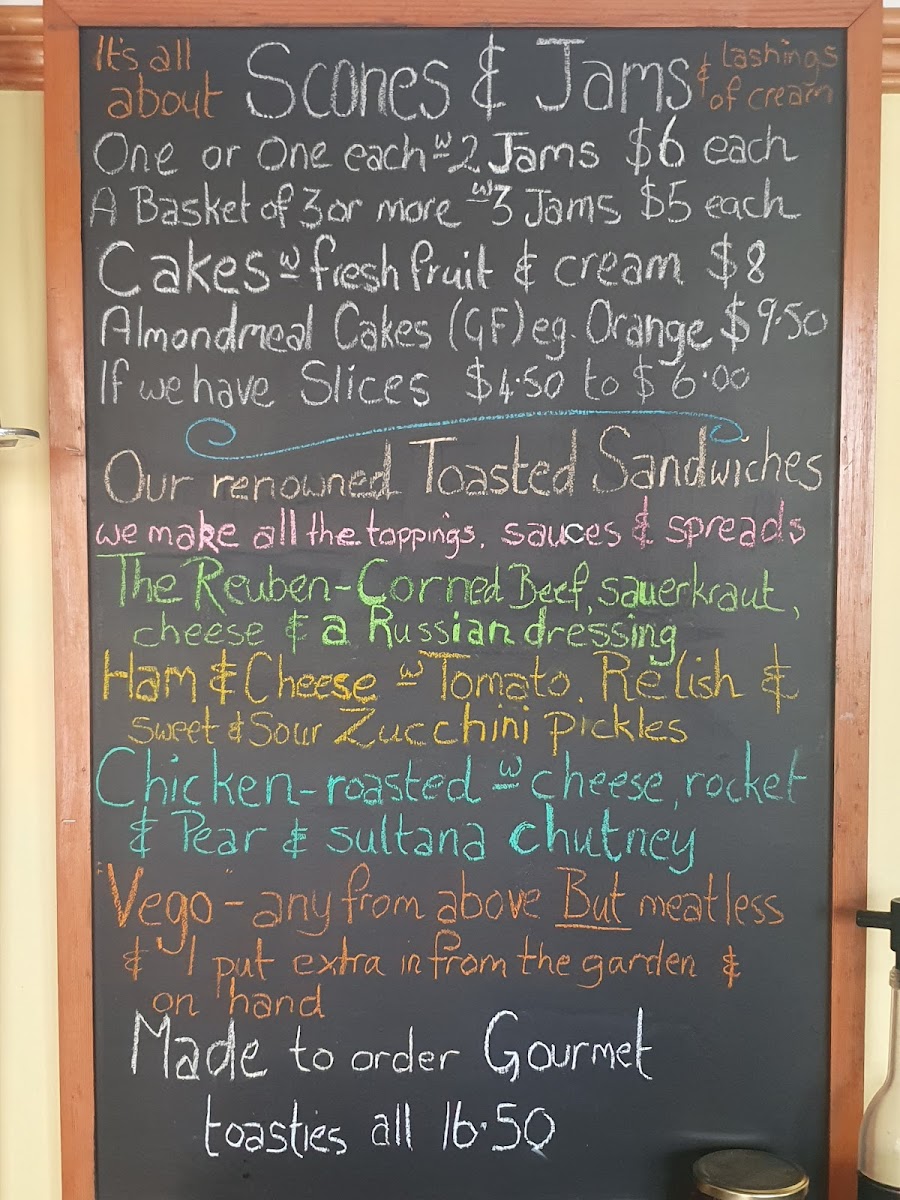 It's all about Scones & Jams & lashings of cream
One or One each w 2 Jams $6 each
A Basket of 3 or more w 3 Jams $5 each
Cakes w fresh fruit & cream $8
Almondmeal Cakes (GF) eg. Orange $9.50
If we have Slices $4.50 to $6.00
Our renowned Toasted Sandwiches
we make all the toppings, sauces & spreads
The Reuben - Corned Beef, sauerkraut,
cheese & a Russian dressing
Ham & Cheese w Tomato, Relish &
Sweet & Sour Zucchini pickles
Chicken - roasted w cheese, rocket
& Pear & sultana chutney
"Vego" - any from above But meatless
& I put extra in from the garden &
on hand
Made to order Gourmet
toasties all 16.50